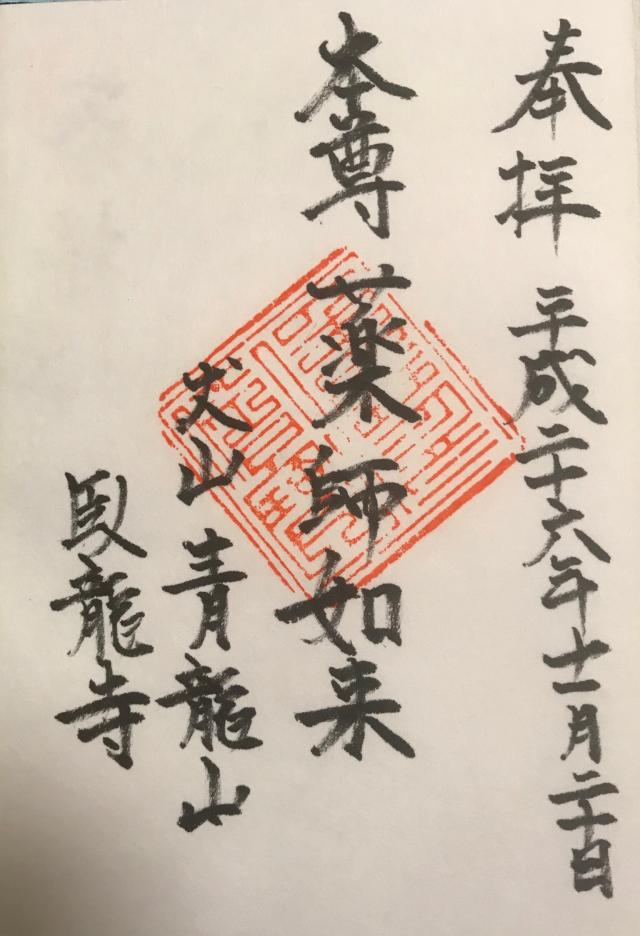 奉拝 平成二十六年十一月二十日
本尊 薬師如来
犬山 青龍山
臥龍寺